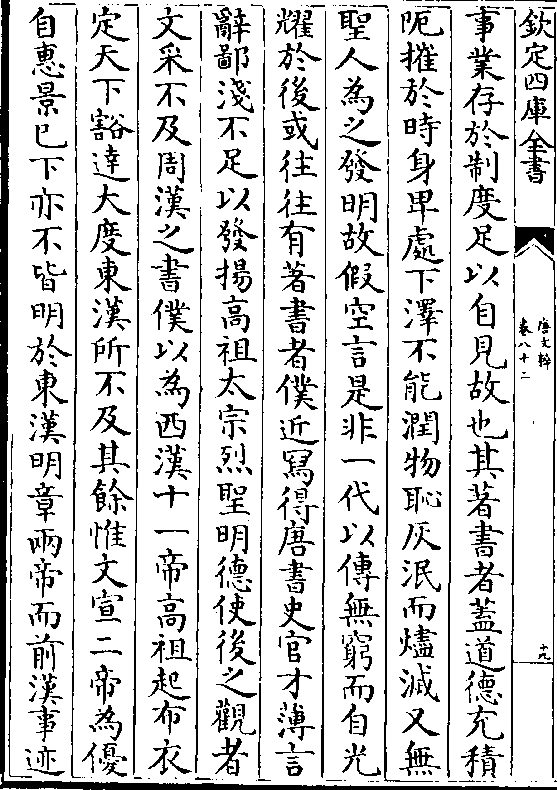 欽定四庫全書
唐文粹
卷八十二
十九
事業存於制度足以自見故也其著書者蓋道德充積
阨摧於時身卑處下澤不能潤物恥灰泯而燼滅又無
聖人為之發明故假空言是非一代以傳無窮而自光
耀於後或往往有著書者僕近寫得唐書史官才薄言
辭鄙淺不足以發揚高祖太宗烈聖明德使後之觀者
文采不及周漢之書僕以為西漢十一帝高祖起布衣
定天下豁達大度東漢所不及其餘惟文宣二帝為優
自惠景已下亦不皆明於東漢明章兩帝而前漢事迹